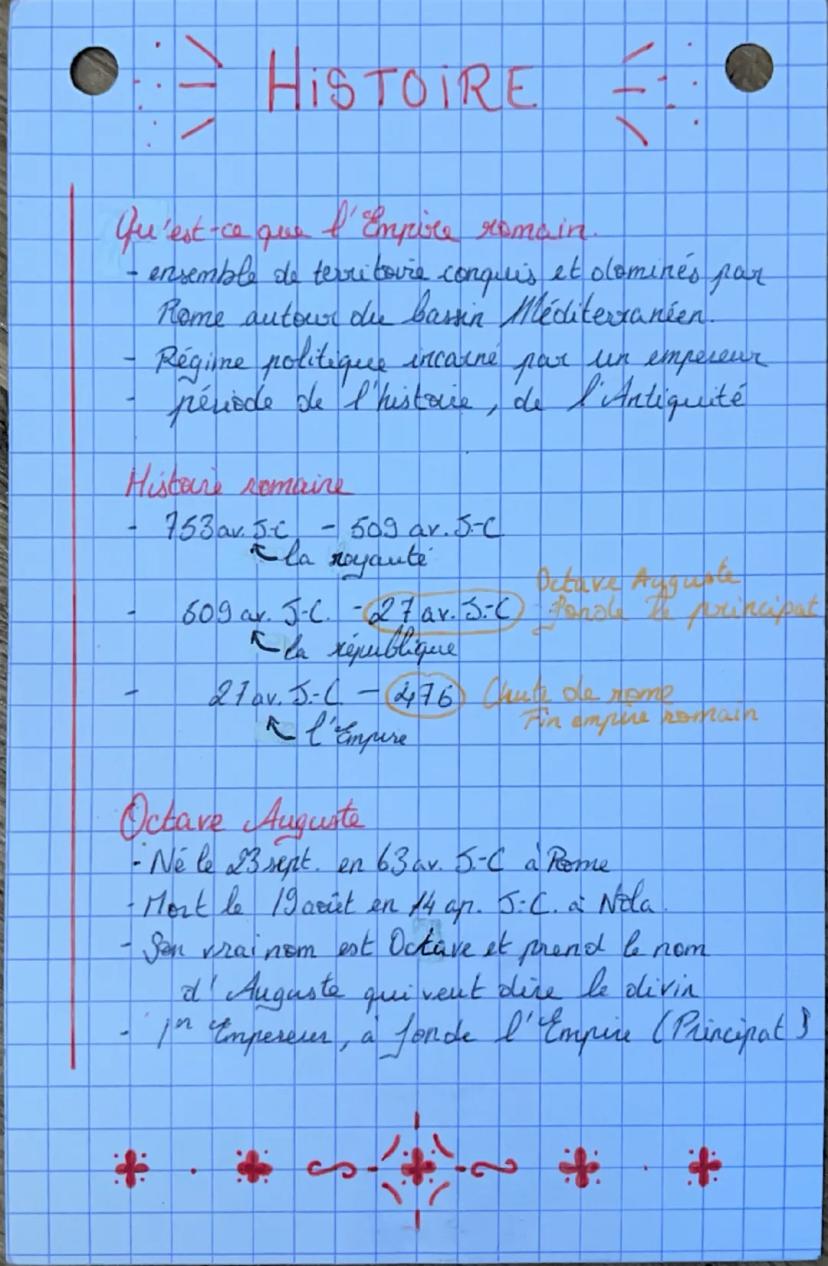 HiSTOiRE
Qu'est-ce que l'Empire romain.
- ensemble de territoire conquis et dominés par
Rome autour du bassin Méditerranéen.
- Régime politique incarné par un empereur
- période de l'histoire, de l'Antiquité
Histoire romaine
- 753 av. J-C - 509 av. J-C
la royauté
Octave Auguste
- 509 av. J-C. - 27 av. J-C fonde le principat
la république
- 27 av. J-C - 476 Chute de rome
Fin empire romain
l'Empire
Octave Auguste
- Né le 23 sept. en 63 av. J-C à Rome
- Mort le 19 août en 14 ap. J-C. à Nola.
- Son vrai nom est Octave et prend le nom
d'Auguste qui veut dire le divin
- 1er Empereur, à fonde l'Empire (Principat)